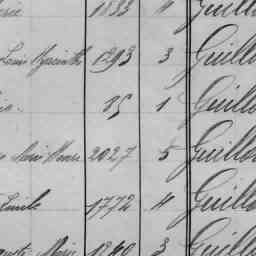 1833 4 Guillo
Louis Hyacinthe 1293 3 Guillo
85 1 Guillo
Marie 2027 5 Guillo
Emile 1772 4 Guillo
Marie 1840 3 Guillo